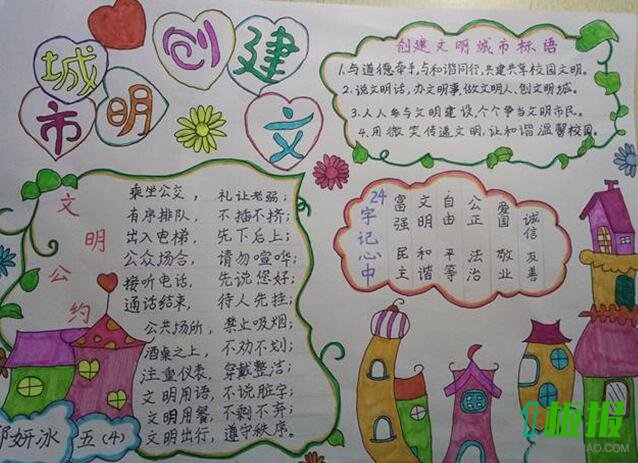 创建文明城市
创建文明城市标语
1.与道德牵手,与和谐同行,共建共享校园文明。
2.说文明话,办文明事,做文明人、创文明城。
3.人人参与文明建设,个个争当文明市民。
4.用微笑传递文明,让和谐温馨校园。
文明公约
乘坐公交,礼让老弱;
有序排队,不插不挤;
出入电梯,先下后上;
公众场合,请勿喧哗;
接听电话,先说您好;
通话结束,待人先挂;
公共场所,禁止吸烟;
酒桌之上,不劝不划;
注重仪表,穿戴整洁;
文明用语,不说脏字;
文明用餐,不剩不弃;
文明出行,遵守秩序。
24字记心中
富强 民主
文明 和谐
自由 平等
公正 法治
爱国 敬业
诚信 友善
妍冰 五(4)
板报